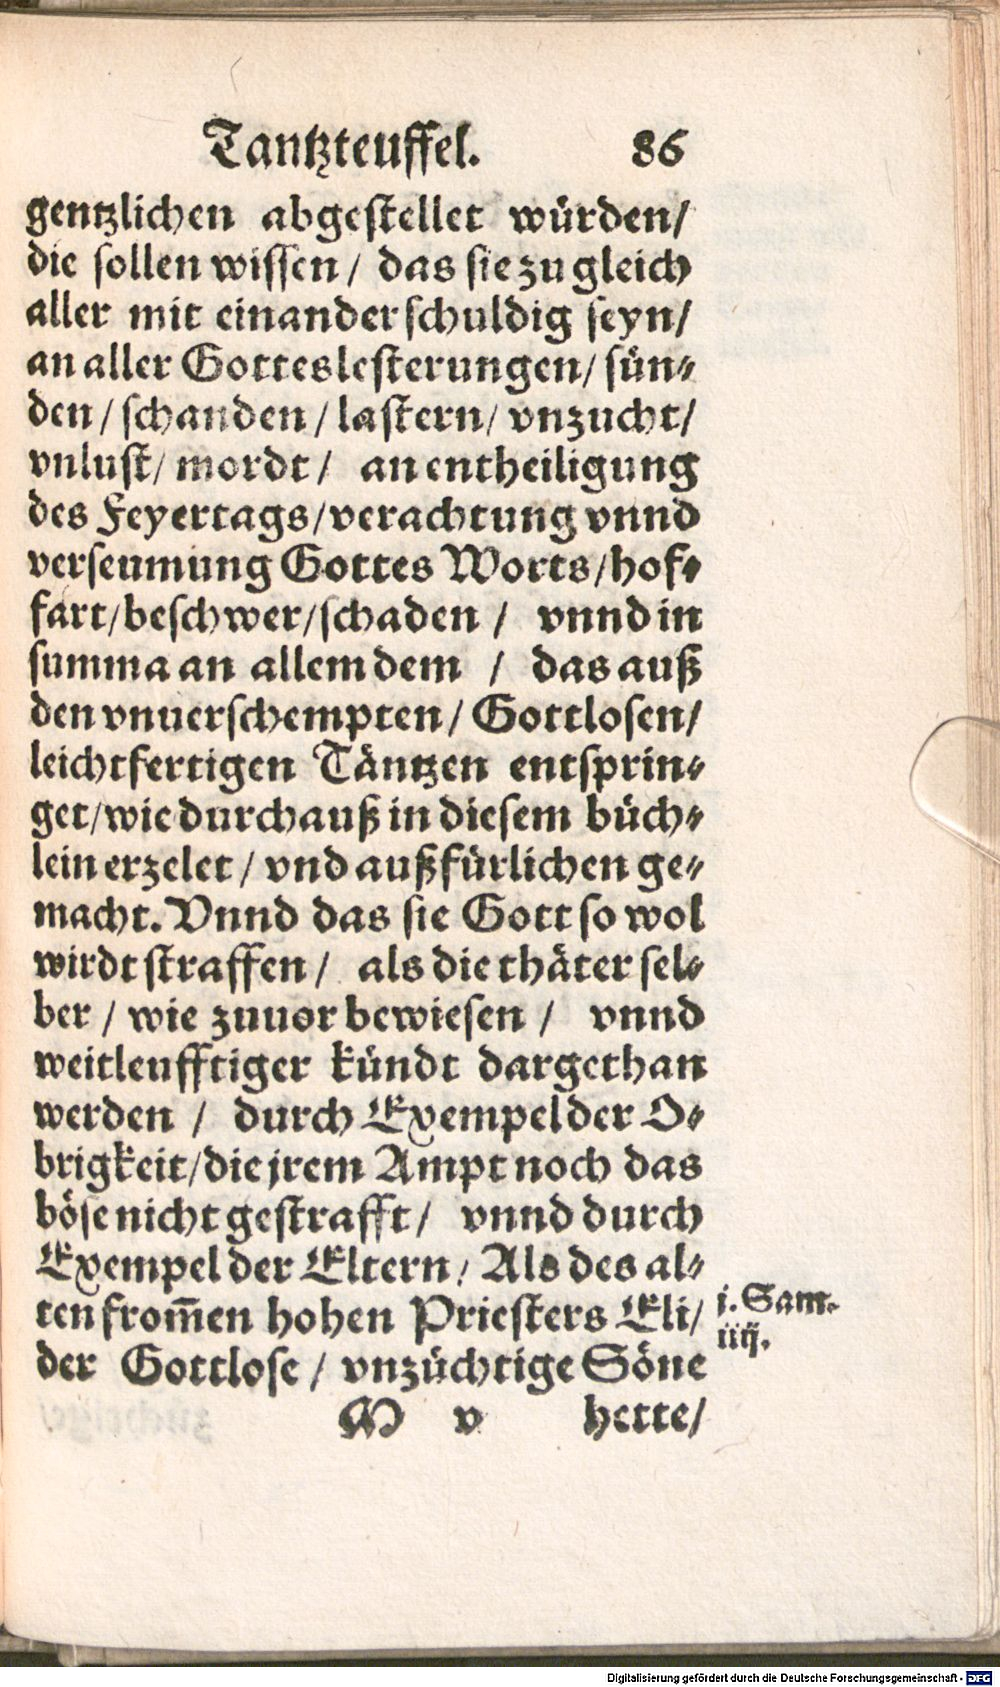 Tantzteuffel. 86
gentzlichen abgestellet würden/
die sollen wissen / das sie zu gleich
aller mit einander schuldig seyn/
an aller Gotteslesterungen/ sün⸗
den / schanden / lastern/ vnzucht/
vnlust/ mordt / an entheiligung
des Feyertags/verachtung vnnd
verseumung Gottes Worts/hof⸗
fart/beschwer/schaden / vnnd in
summa an allem dem / das auß
den vnuerschempten/ Gottlosen/
leichtfertigen Täntzen entsprin⸗
get/wie durchauß in diesem büch⸗
lein erzelet / vnd außfürlichen ge⸗
macht. Vnnd das sie Gott so wol
wirdt straffen / als die thäter sel⸗
ber / wie zuuor bewiesen / vnnd
weitleufftiger kündt dargethan
werden / durch Exempel der O⸗
brigkeit/die jrem Ampt noch das
böse nicht gestrafft / vnnd durch
Exempel der Eltern / Als des al⸗
ten from̄en hohen Priesters Eli/
j. Sam.
iiij.
der Gottlose / vnzüchtige Söne
M v hette/
Digitalisierung gefördert durch die Deutsche Forschungsgemeinschaft - DFG